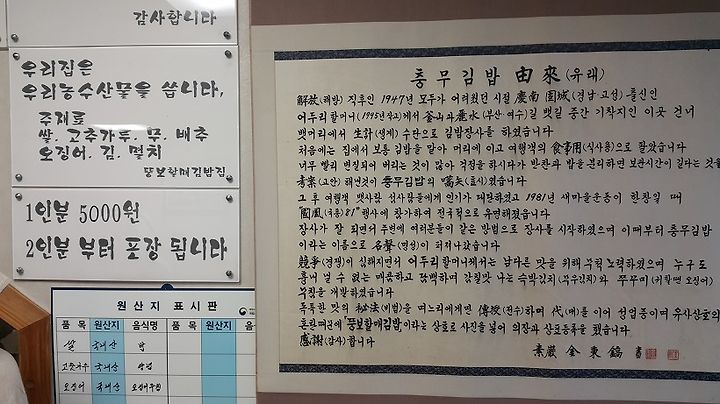 감사합니다
우리집은
우리농수산물을 씁니다,
주재료
쌀. 고추가루. 무. 배추
오징어. 김. 멸치
뚱보할매김밥집
1인분 5000원
2인분 부터 포장 됩니다
원 산 지 표 시 판
품 목 원산지 음식명 품 목 원산지 음식명
쌀 국내산 밥
고춧가루 국내산
오징어 국내산 오징어무침
충무김밥 由來 (유래)
解放(해방) 직후인 1947년 모두가 어려웠던 시절 慶南 固城(경남 고성) 출신인
어두리할머니(1995년 작고)께서 釜山과 麗水(부산 여수)길 뱃길 중간 기착지인 이곳 건너
뱃머리에서 生計(생계) 수단으로 김밥장사를 하였습니다
처음에는 집에서 보통 김밥을 말아 머리에 이고 여행객의 食事用(식사용)으로 팔았습니다
너무 빨리 변질되어 버리는 것이 많아 걱정을 하시다가 반찬과 밥을 분리하면 보관시간이 길다는 것을
考案(고안) 해낸것이 충무김밥의 嚆矢(효시)였습니다
그 후 여행객 뱃사람 섬사람들에게 인기가 대단하였고 1981년 새마을운동이 한창일 때
"國風(국풍)81" 행사에 참가하여 전국적으로 유명해졌습니다
장사가 잘 되면서 주변에 여러분들이 같은 방법으로 장사를 시작하였으며 이때부터 충무김밥
이라는 이름으로 名聲(명성)이 퍼져나갔습니다
競爭(경쟁)이 심해지면서 어두리할머니께서는 남다른 맛을 위해 무척 노력하였으며 누구도
흉내 낼 수 없는 매콤하고 담백하며 감칠맛 나는 숙박김치(무우김치)와 쭈꾸미(귀할땐 오징어)
무침을 개발하였습니다
독특한 맛의 秘法(비법)을 며느리에게만 傳授(전수)하며 代(대)를 이어 성업중이며 유사상호의
혼란때문에 "뚱보할매김밥"이라는 상호로 사진을 넣어 의장과 상표등록을 했습니다
感謝(감사)합니다